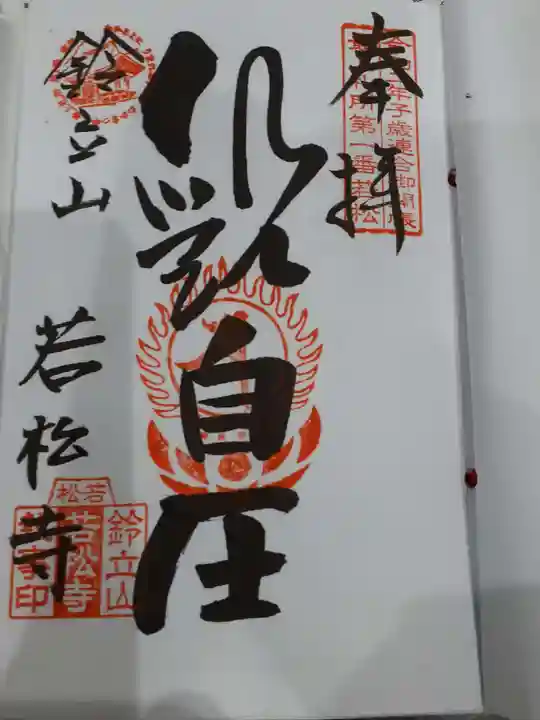 奉拝
令和二年子歳連合御開帳
最上札所第一番若松
観自在
鈴立山
若松寺
若松
鈴立山
若松寺